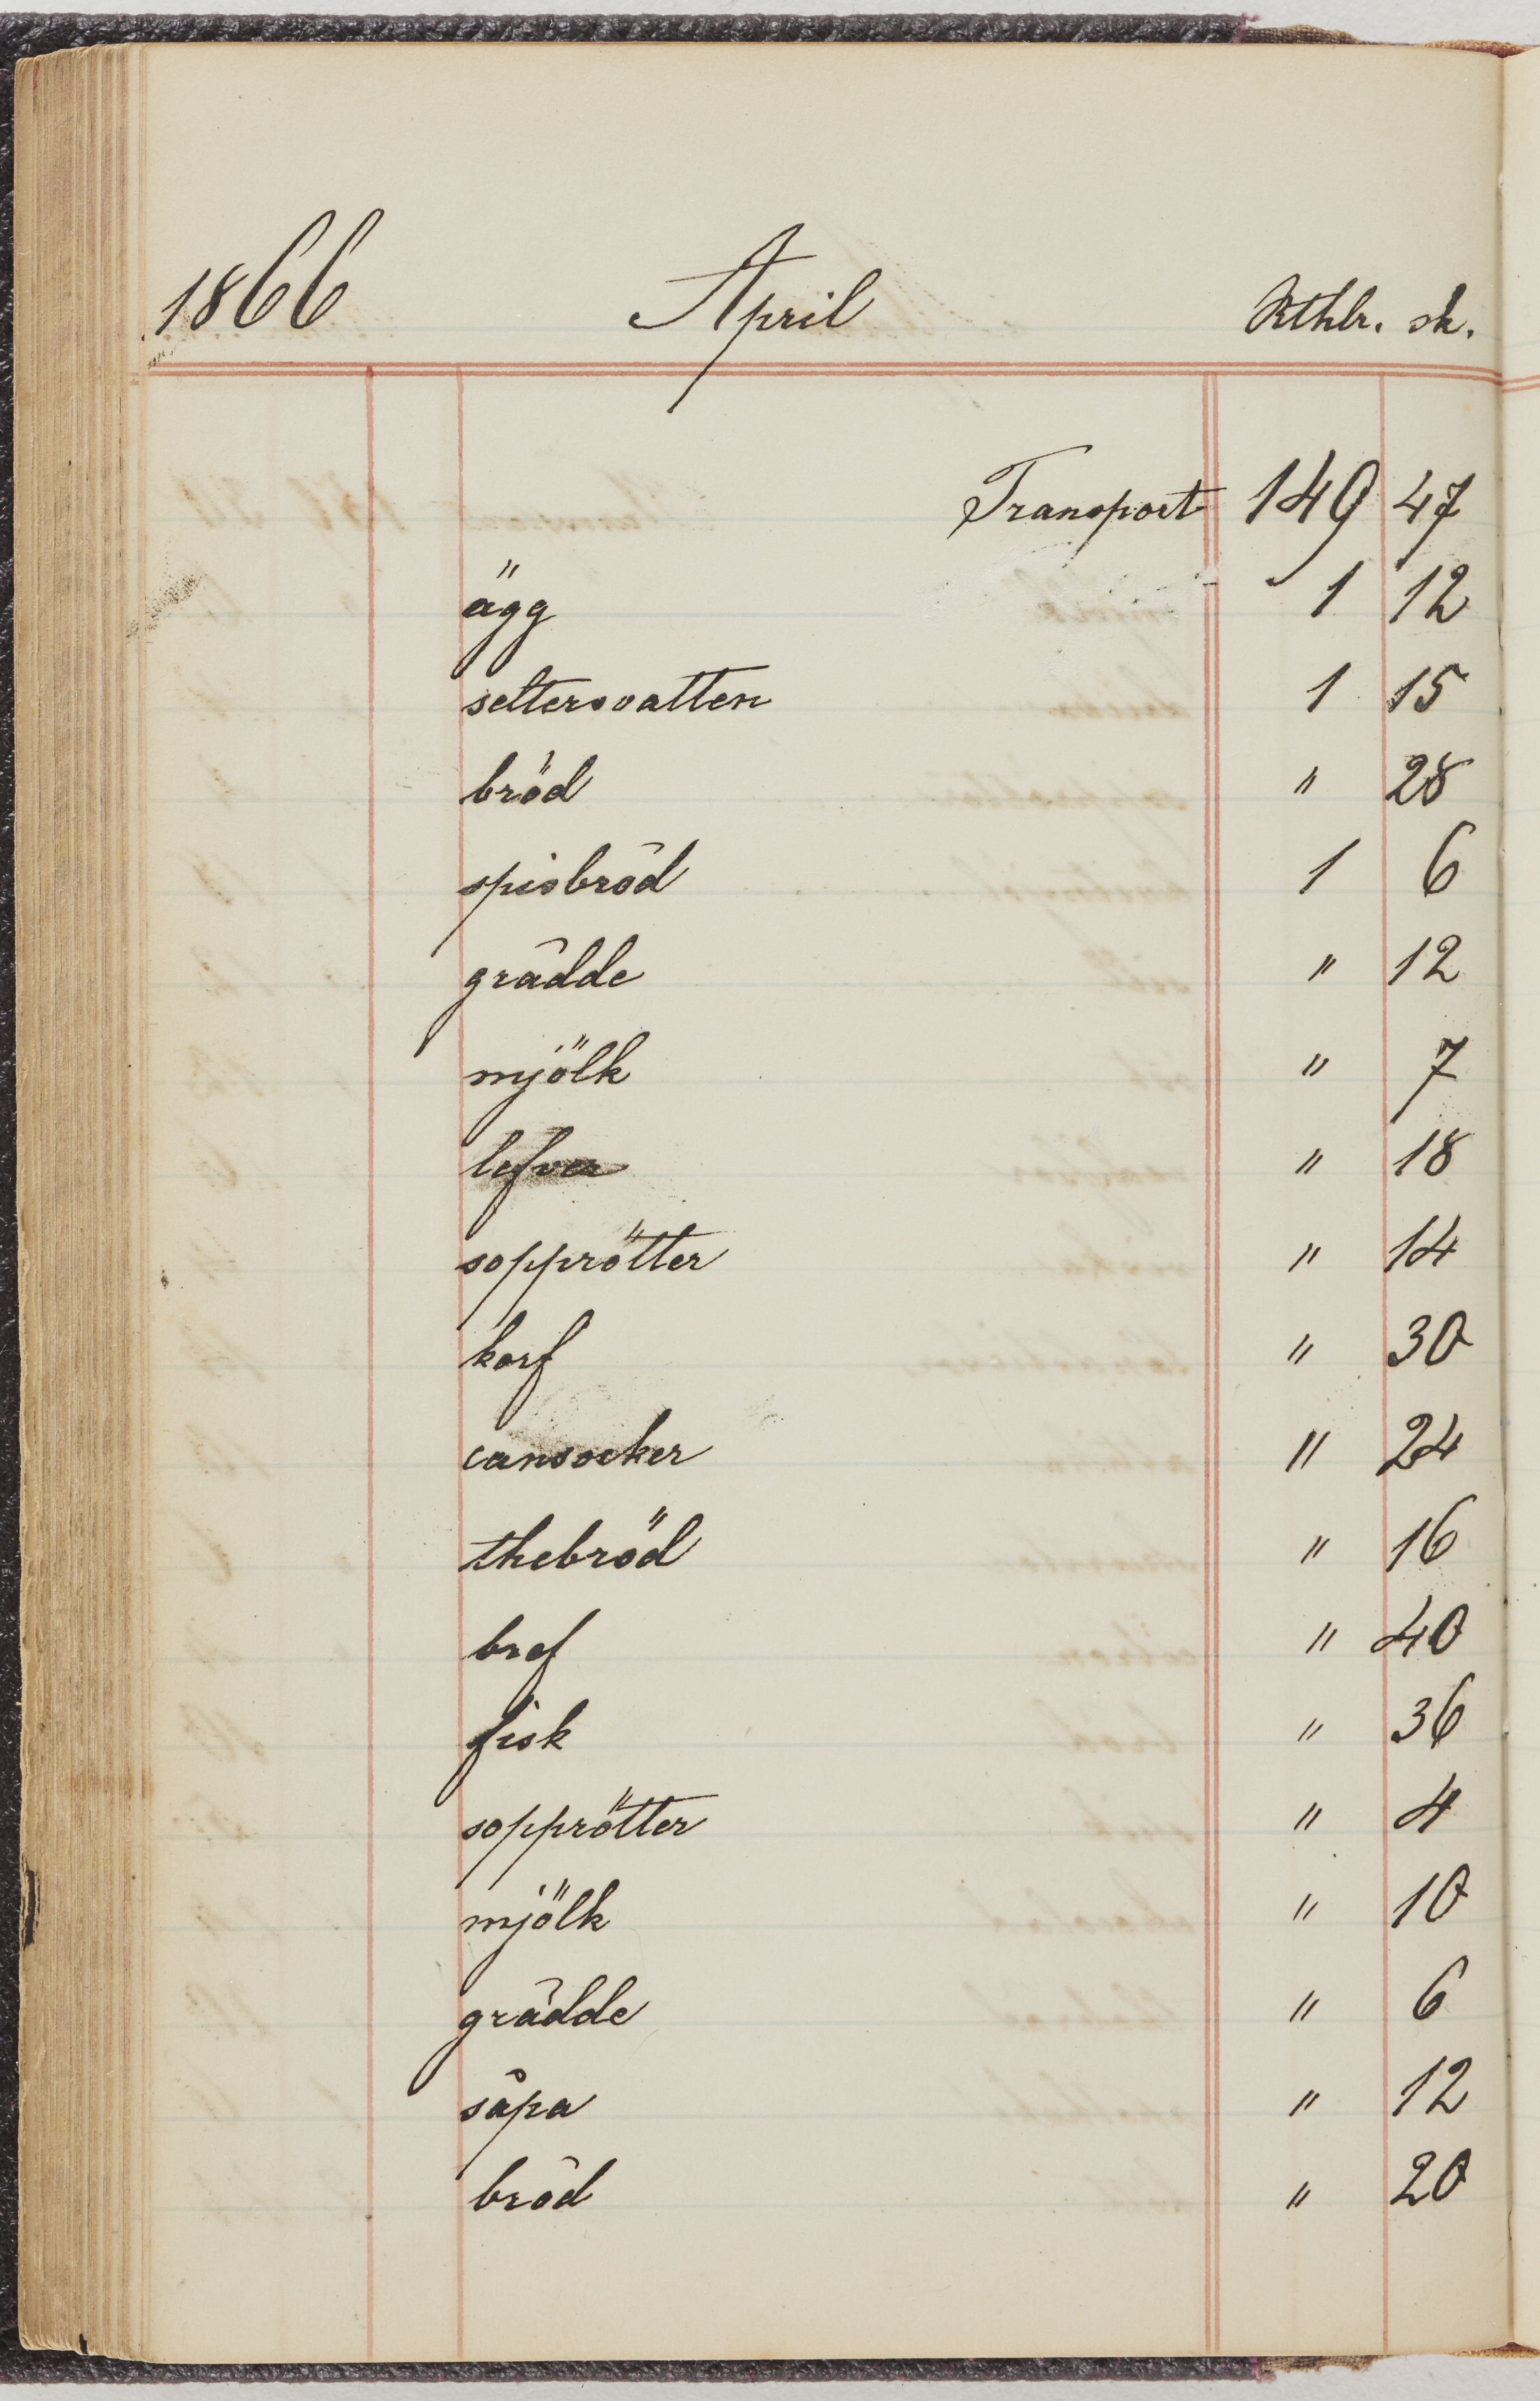 1866 April Rthlr. sk.
Transport 149 47
ägg 1 12
seltersvatten 1 15
bröd " 28
spisbröd 1 6
grädde " 12
mjölk " 7
lefver " 18
sopprötter " 14
korf " 30
cansocker " 24
thebröd " 16
bref " 40
fisk " 36
sopprötter " 4
mjölk " 10
grädde " 6
såpa " 12
bröd " 20